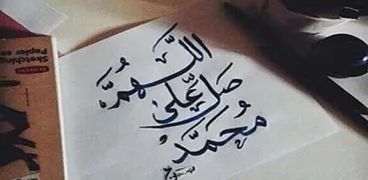 اللَّهُمَّ
صَلِّ عَلَى
مُحَمَّد
Sketching
Papier es